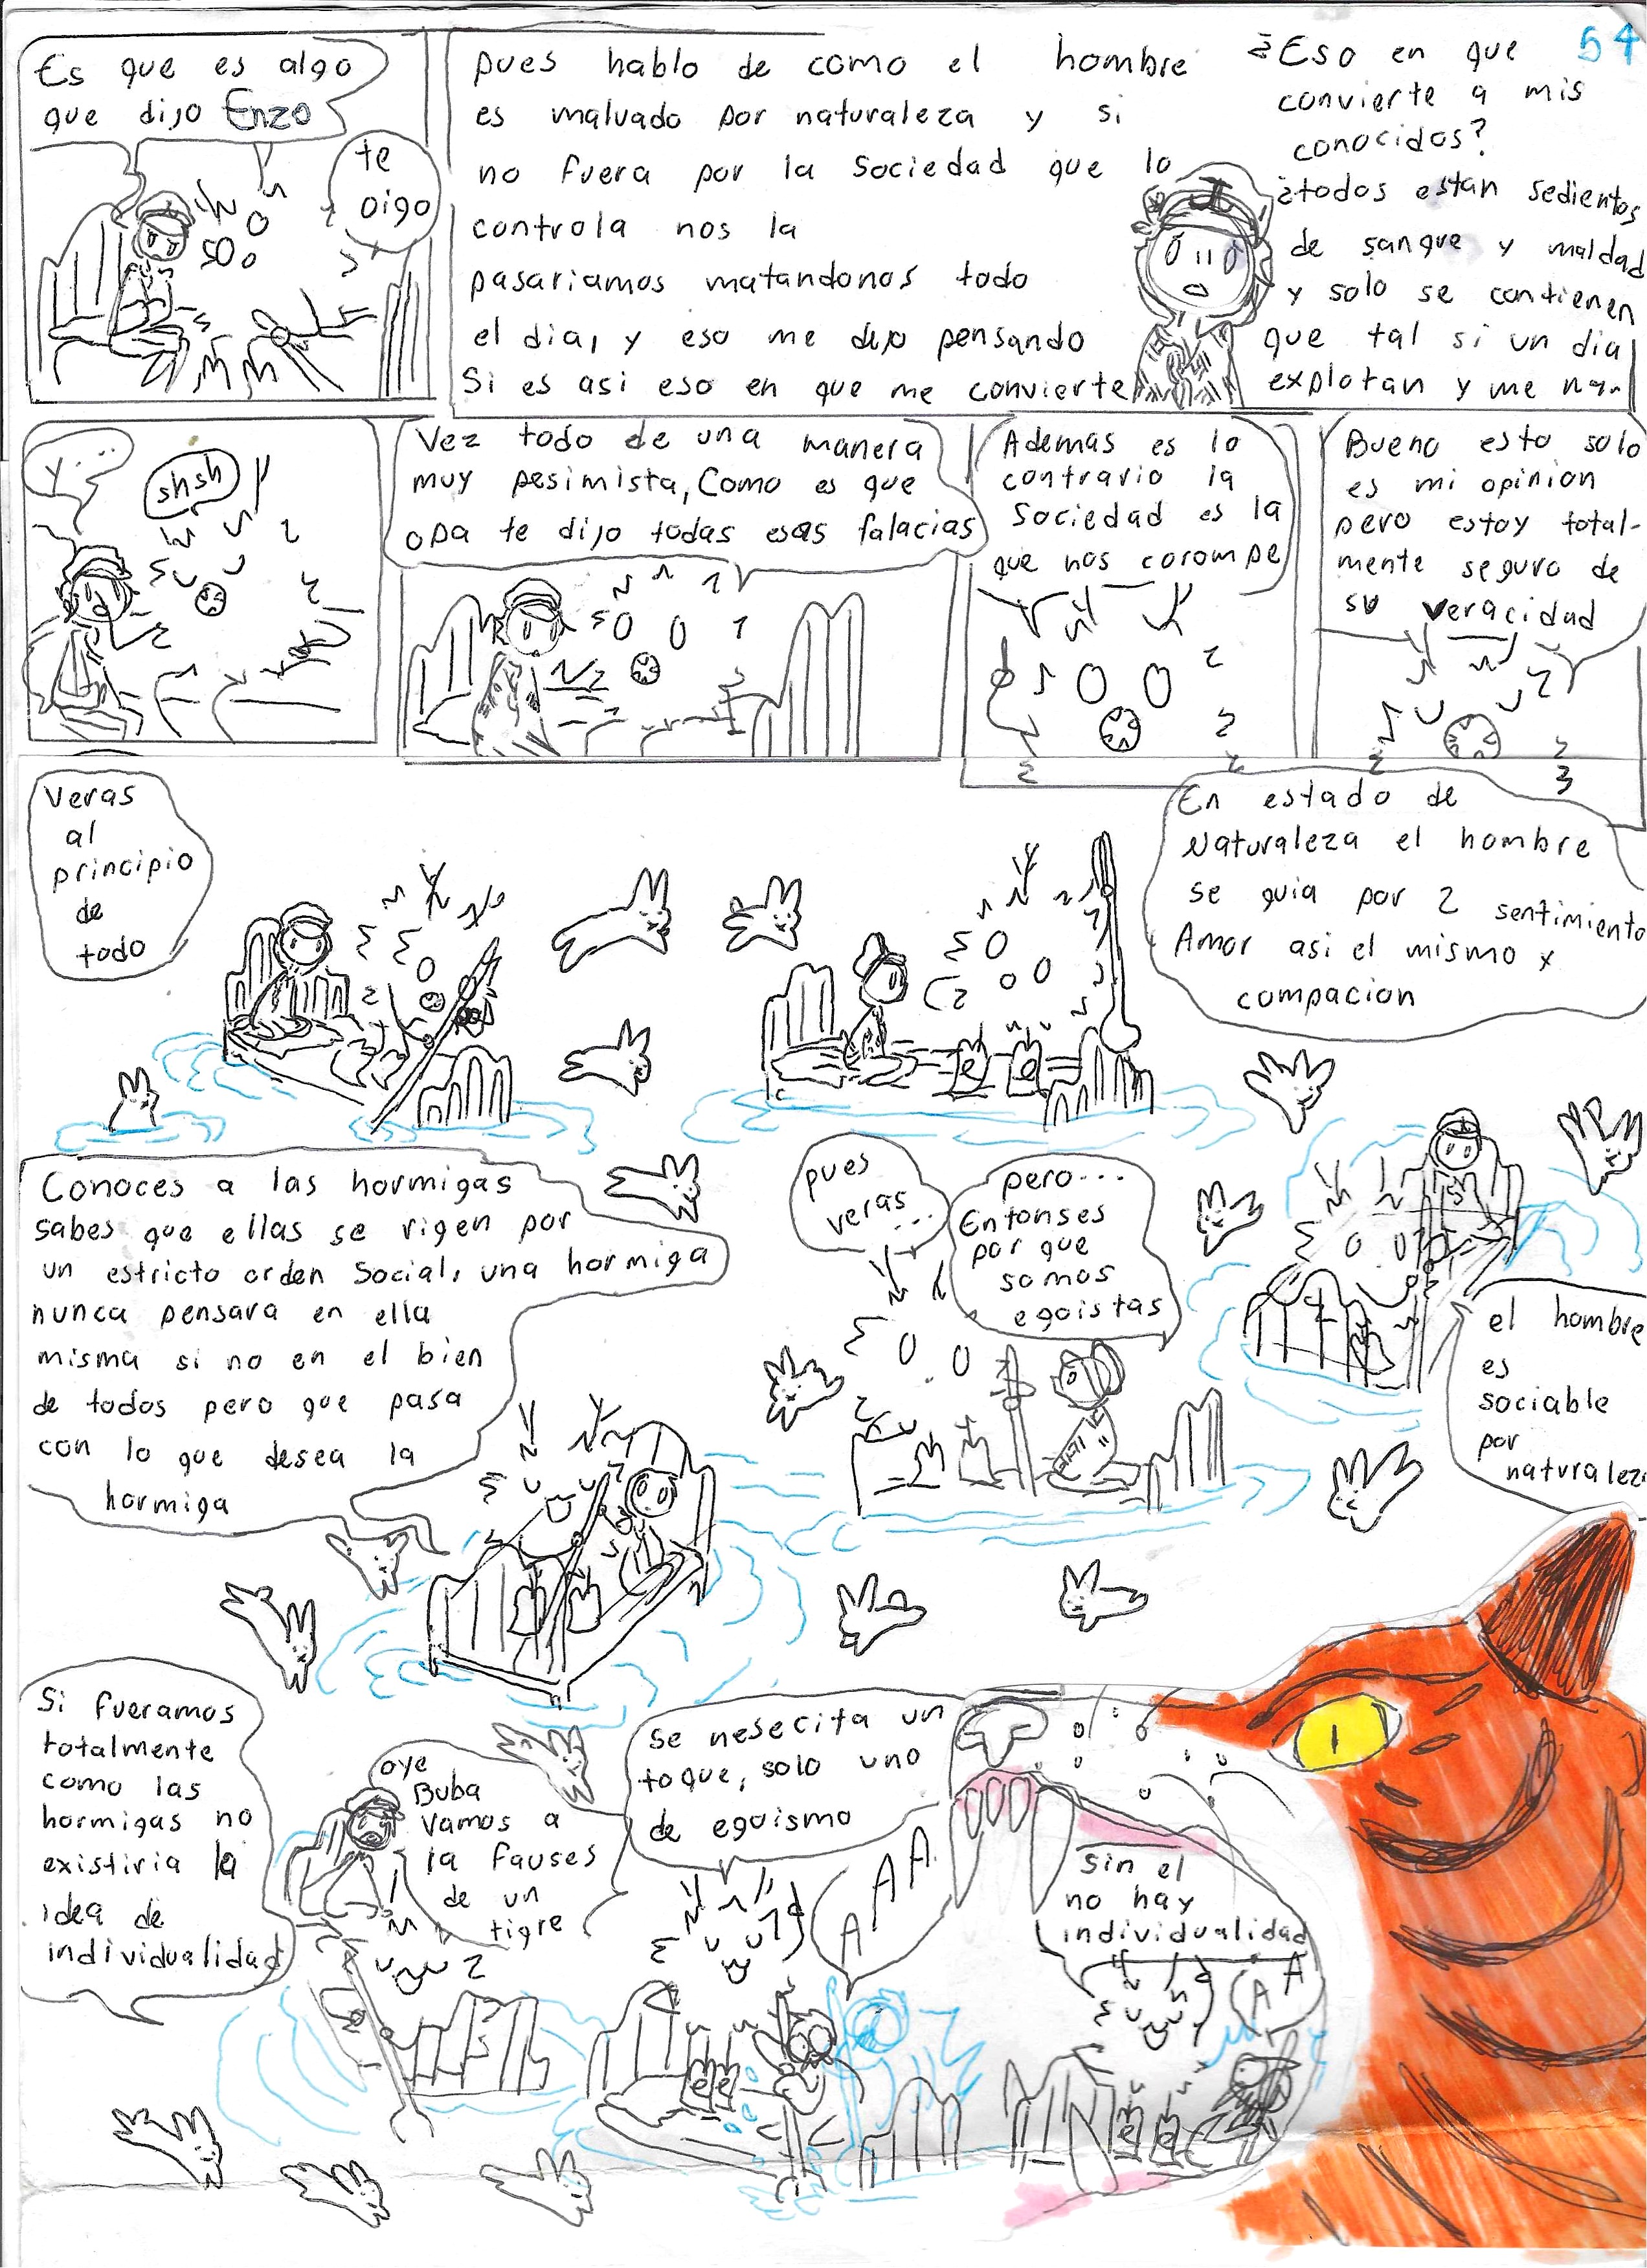 54
Es que es algo
que dijo Enzo
te
oigo
pues hablo de como el hombre
es malvado por naturaleza y si
no fuera por la sociedad que lo
controla nos la
pasariamos matandonos todo
el dia, y eso me dejo pensando
Si es asi eso en que me convierte
¿Eso en que
convierte a mis
conocidos?
¿todos estan sedientos
de sangre y maldad
y solo se contienen
que tal si un dia
explotan y me
y...
shsh
Vez todo de una manera
muy pesimista, Como es que
opa te dijo todas esas falacias
Ademas es lo
contrario la
Sociedad es la
que nos corompe
Bueno esto solo
es mi opinion
pero estoy total-
mente seguro de
su veracidad
Veras
al
principio
de
todo
En estado de
Naturaleza el hombre
se guia por 2 sentimiento
Amor asi el mismo y
compacion
el hombre
es
sociable
por
naturalez
pero...
Entonses
por que
somos
egoistas
pues
veras
...
Conoces a las hormigas
sabes que ellas se rigen por
un estricto orden Social, una hormiga
nunca pensara en ella
misma si no en el bien
de todos pero que pasa
con lo que desea la
hormiga
Si fueramos
totalmente
como las
hormigas no
existiria la
idea de
individualidad
oye
Buba
vamos a
la fauses
de un
tigre
Se nesecita un
toque, solo uno
de egoismo
A A A
Sin el
no hay
individualidad
A A